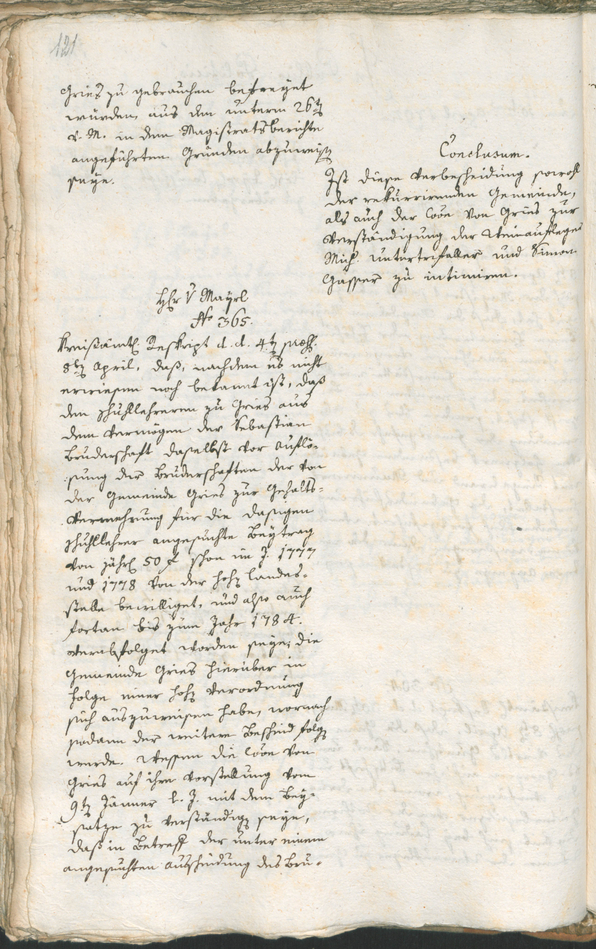 121
Gries zu gebrauchen befreyet
wurden, aus den unterm 26t
v. M. in dem Magistratsberichte
angeführten Gründen abzuweisen
seye.
Conclusum.
Ist diese Verbescheidung sowohl
der rekurrirenden Gemeinde,
als auch der Löbe von Gries zur
Verständigung der Weinaufleger
Mich. Untertrifaller und Simon
Gasser zu intimiren.
Hr v Mayrl
No 365.
Kreisämtl. Reskript d. d. 4t
8t April, daß, nachdem es nicht
erwiesen noch bekannt ist, daß
den Schullehreren zu Gries aus
dem Vermögen der Sebastian
Bruderschaft daselbst vor Auflö-
sung der Bruderschaften der von
der Gemeinde Gries zur Gehalts-
Vermehrung für die dasigen
Schullehrer angesuchte Beytrag
von jährl 50 f schon im J. 1777
und 1778 von der hohen Landes-
stelle bewilliget, und also auch
fortan bis zum Jahr 1784.
verabfolget worden seye, die
Gemeinde Gries hierüber in
Folge einer hohen Verordnung
sich auszuweisen habe, wornach
sodann der weitere Bescheid folgen
werde. Wessen die Löbe von
Gries auf ihre Vorstellung vom
9t Jänner l. J. mit dem Bey-
satze zu verständigen seye,
daß in Betreff der unter einem
angesuchten Ausfindung des Bru-